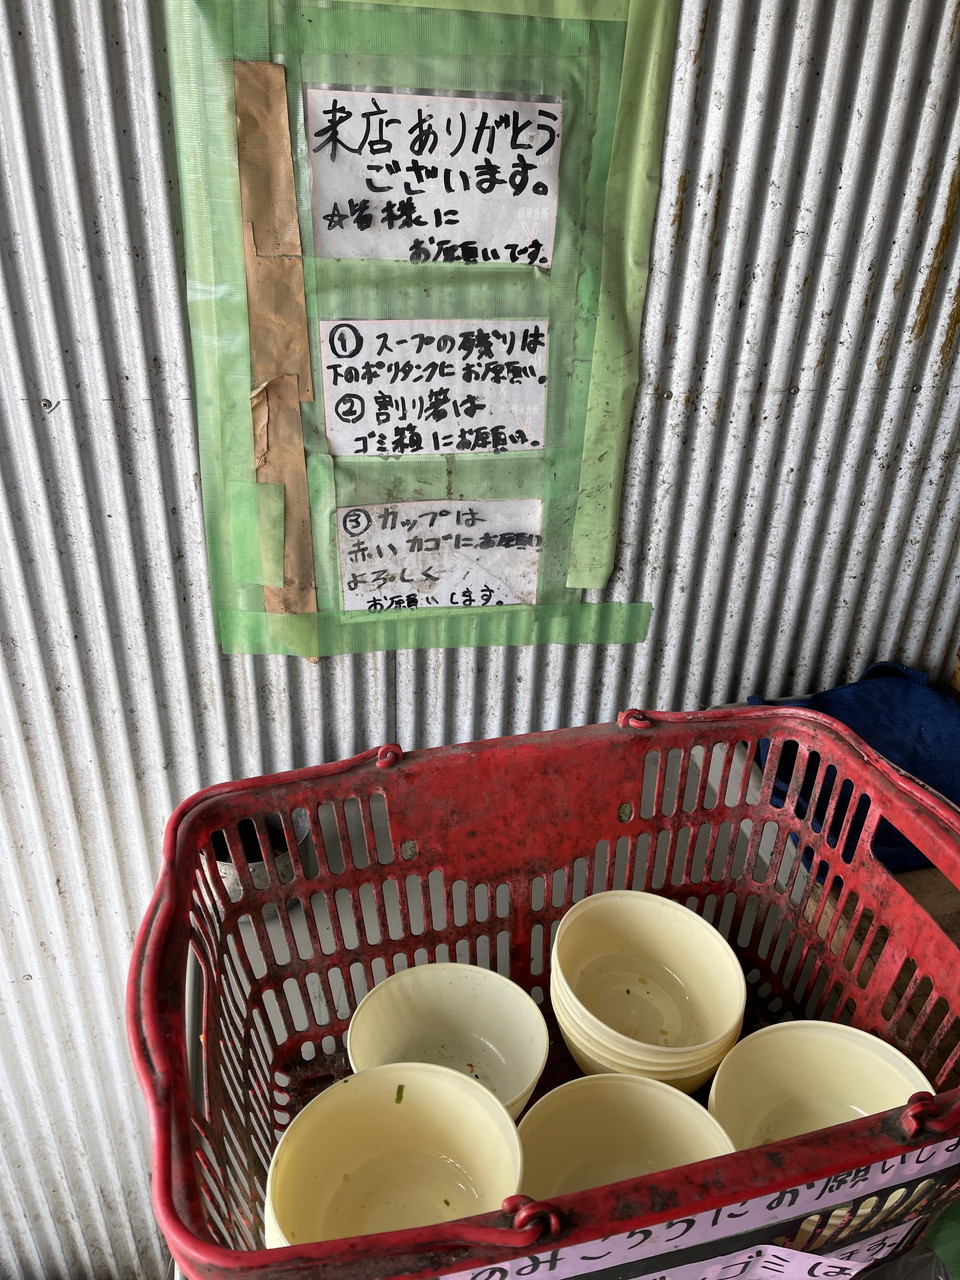 来店ありがとう
ございます。
☆皆様に
お願いです。
① スープの残りは
下のポリタンクにお願い。
② 割り箸は
ゴミ箱にお願い。
③ カップは
赤いカゴにお願い
よろしく
お願いします。
のみこちらにお願いしま
ゴミは